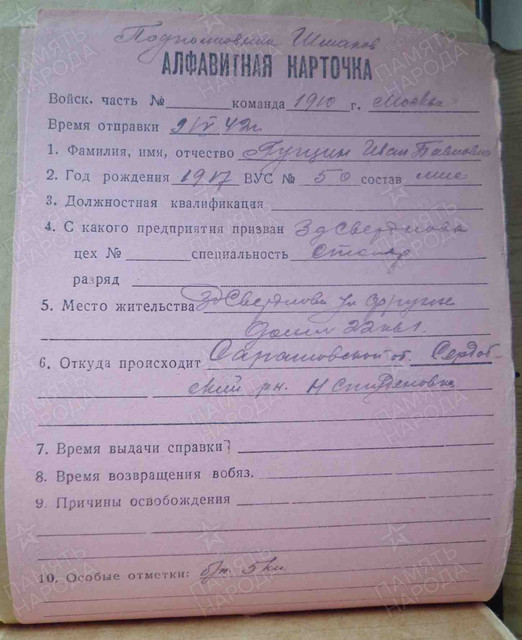 Подполковник Шмаков
АЛФАВИТНАЯ КАРТОЧКА
Войск. часть № команда 1910 г. Москва
Время отправки 9/IV 42г
1. Фамилия, имя, отчество Иван Павлович
2. Год рождения 1917 ВУС № 50 состав
3. Должностная квалификация
4. С какого предприятия призван Зд Свердлова
цех № специальность столяр
разряд
5. Место жительства Зд Свердлова ул Фрунзе
22 кв 1.
6. Откуда происходит Саратовской об. Сердоб-
ский рн.
7. Время выдачи справки
8. Время возвращения вобяз.
9. Причины освобождения
10. Особые отметки: б/п. 5 кл.
ПАМЯТЬ НАРОДА